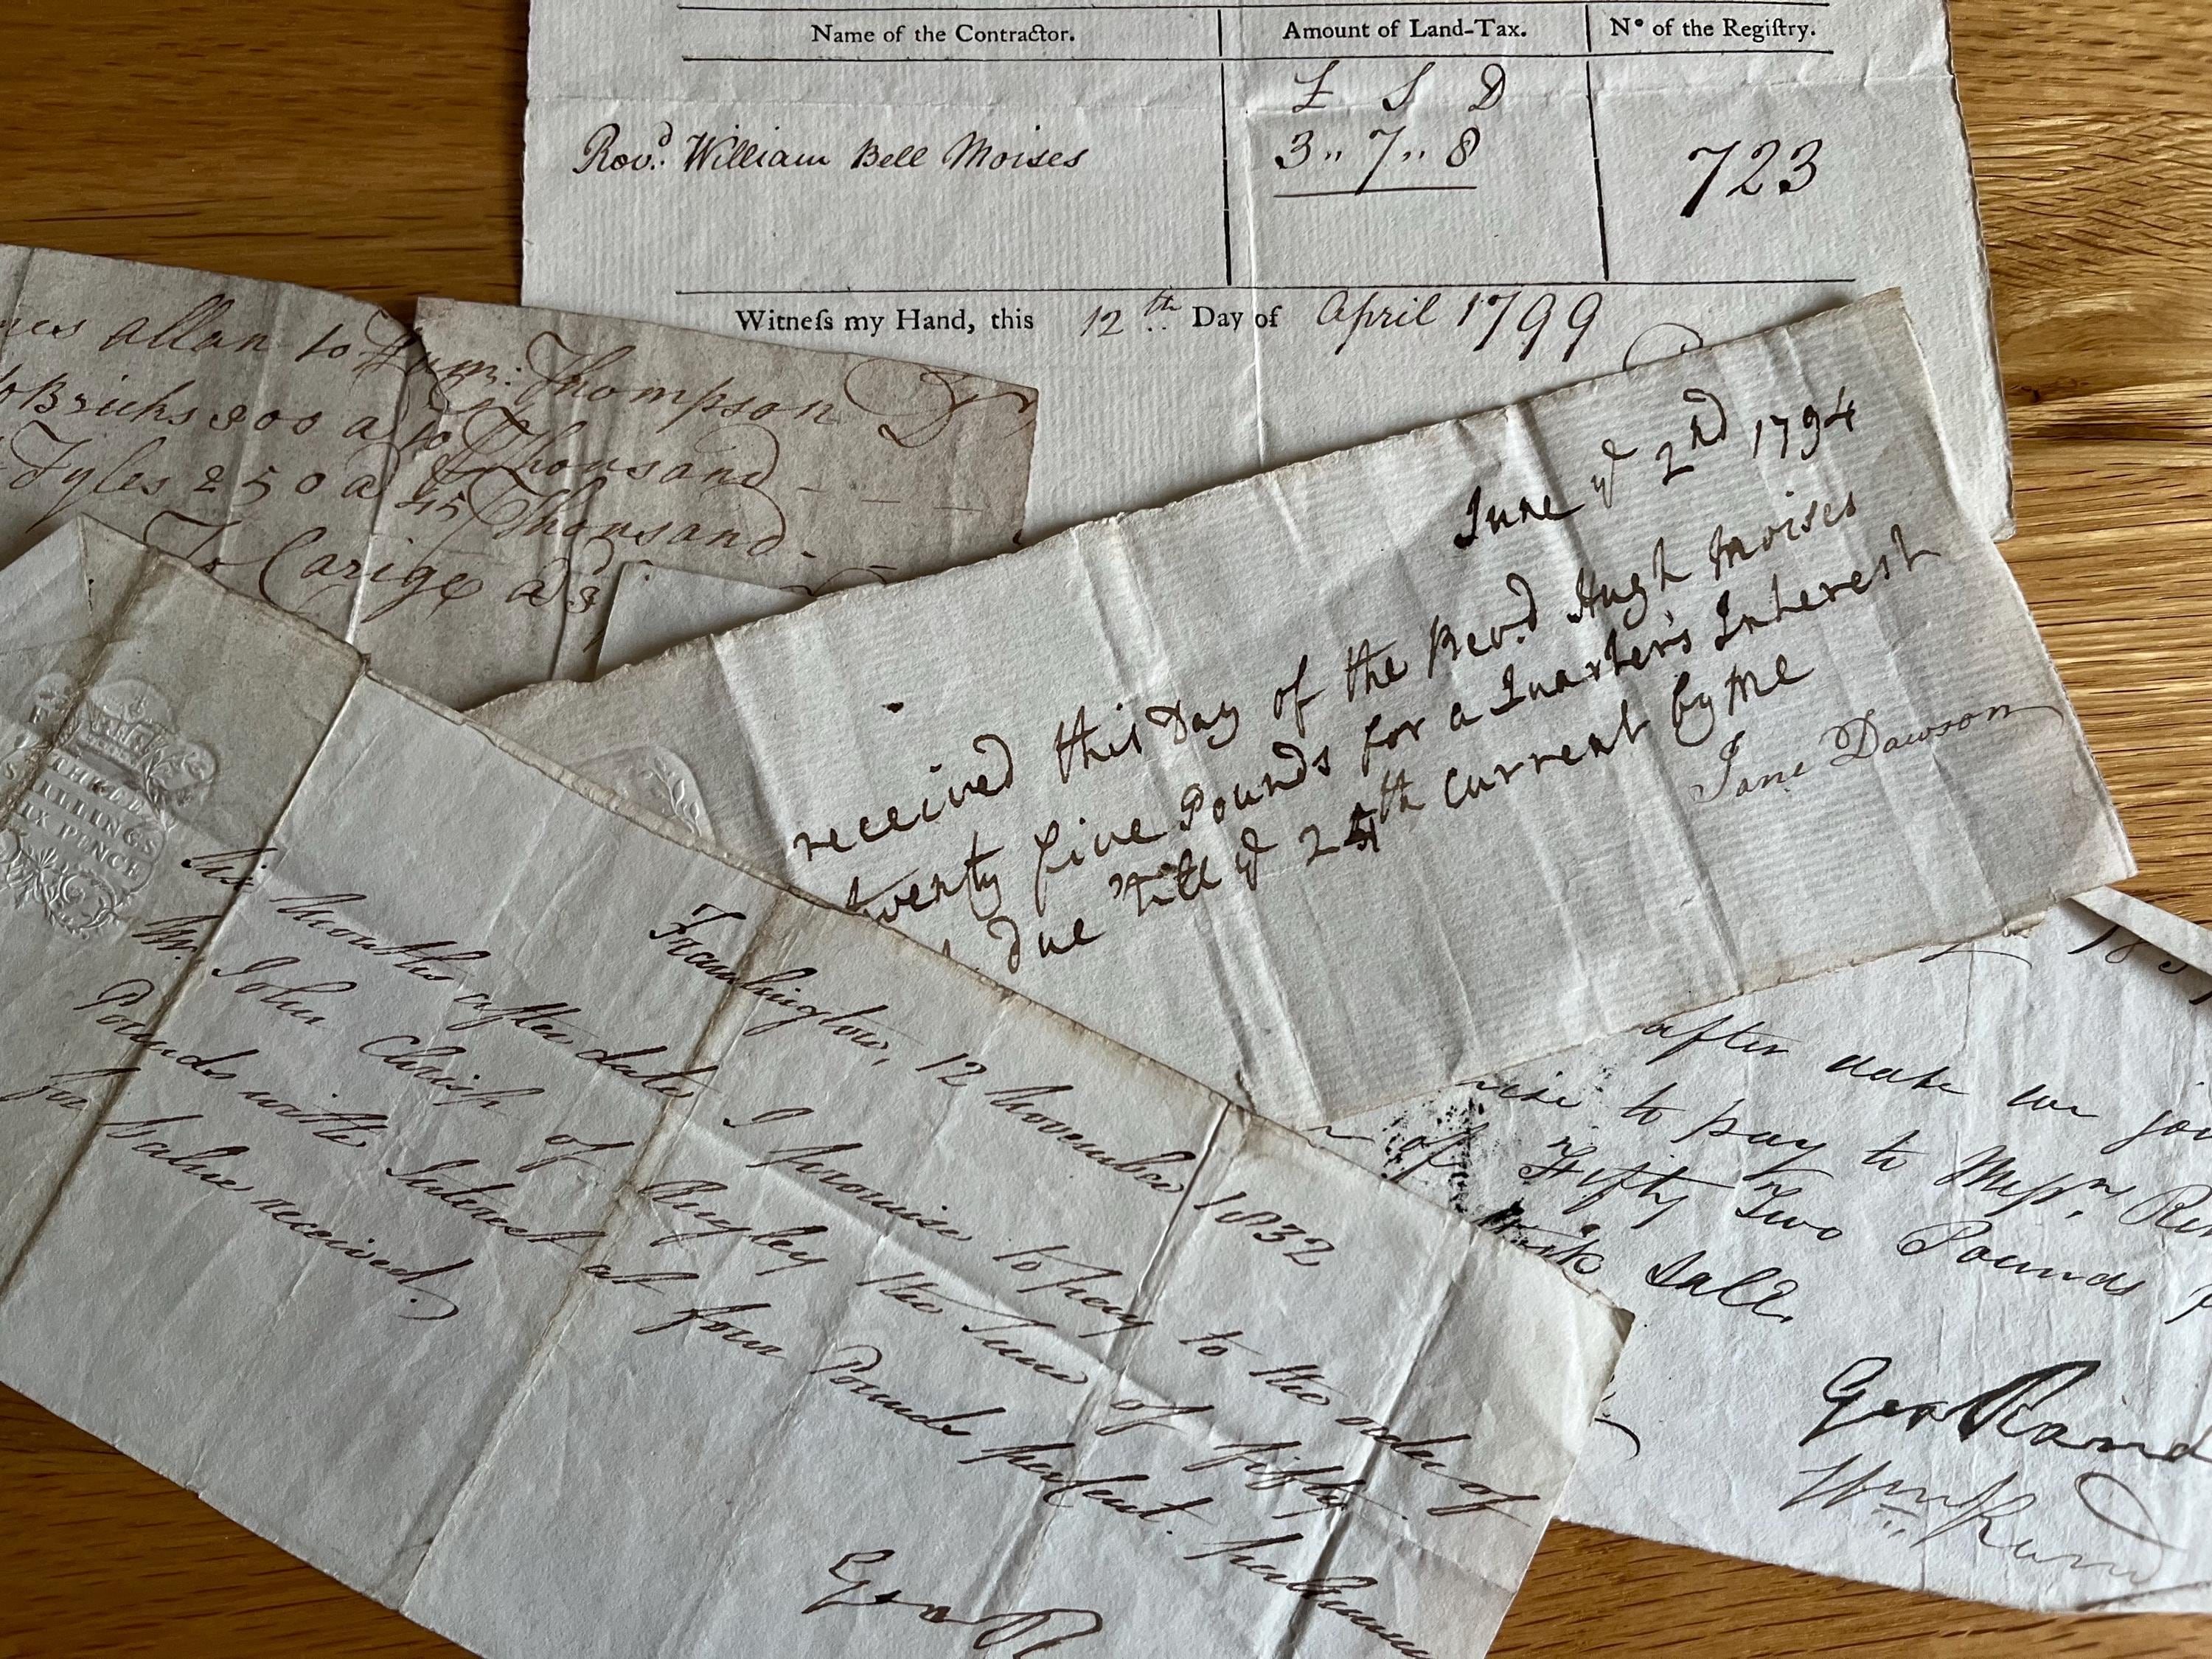 Name of the Contractor. Amount of Land-Tax. Nº of the Regiſtry.
£ S D
Revd. William Bell Moises 3 " 7 " 8 723
Witneſs my Hand, this 12th Day of April 1799
allan to Thompson Dr
Bricks 800 a 10 Thousand
Tyles 250 a 45 Thousand
To Carige a 3d
June ye 2nd 1794
received this Day of the Revd. Hugh Moises
twenty five Pounds for a Quarter's Interest
due till ye 24th current by me
Jane Dawson
THREE
SHILLINGS
SIX PENCE
Framlington, 12 November 1832
Six Months after date I Promise to pay to the order of
Mr. John Chrisp of Rugley the Sum of fifty
Pounds with Interest at four Pounds per Cent. per Annum
for Value received.
Geo R
after date we
to pay to Messrs.
of Fifty Two Pounds
Sale.
Geo Raind
Wm